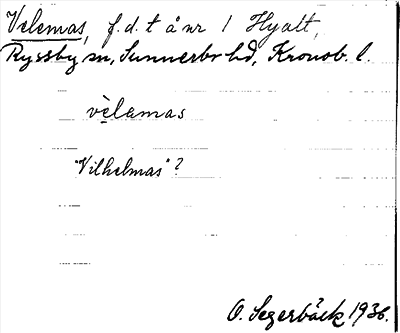 Velemas, f.d. t å nr 1 Hyalt,
Ryssby sn, Sunnerbo hd, Kronob. l.
vèlamas
"Vilhelmas"?
O. Segerbäck 1936.